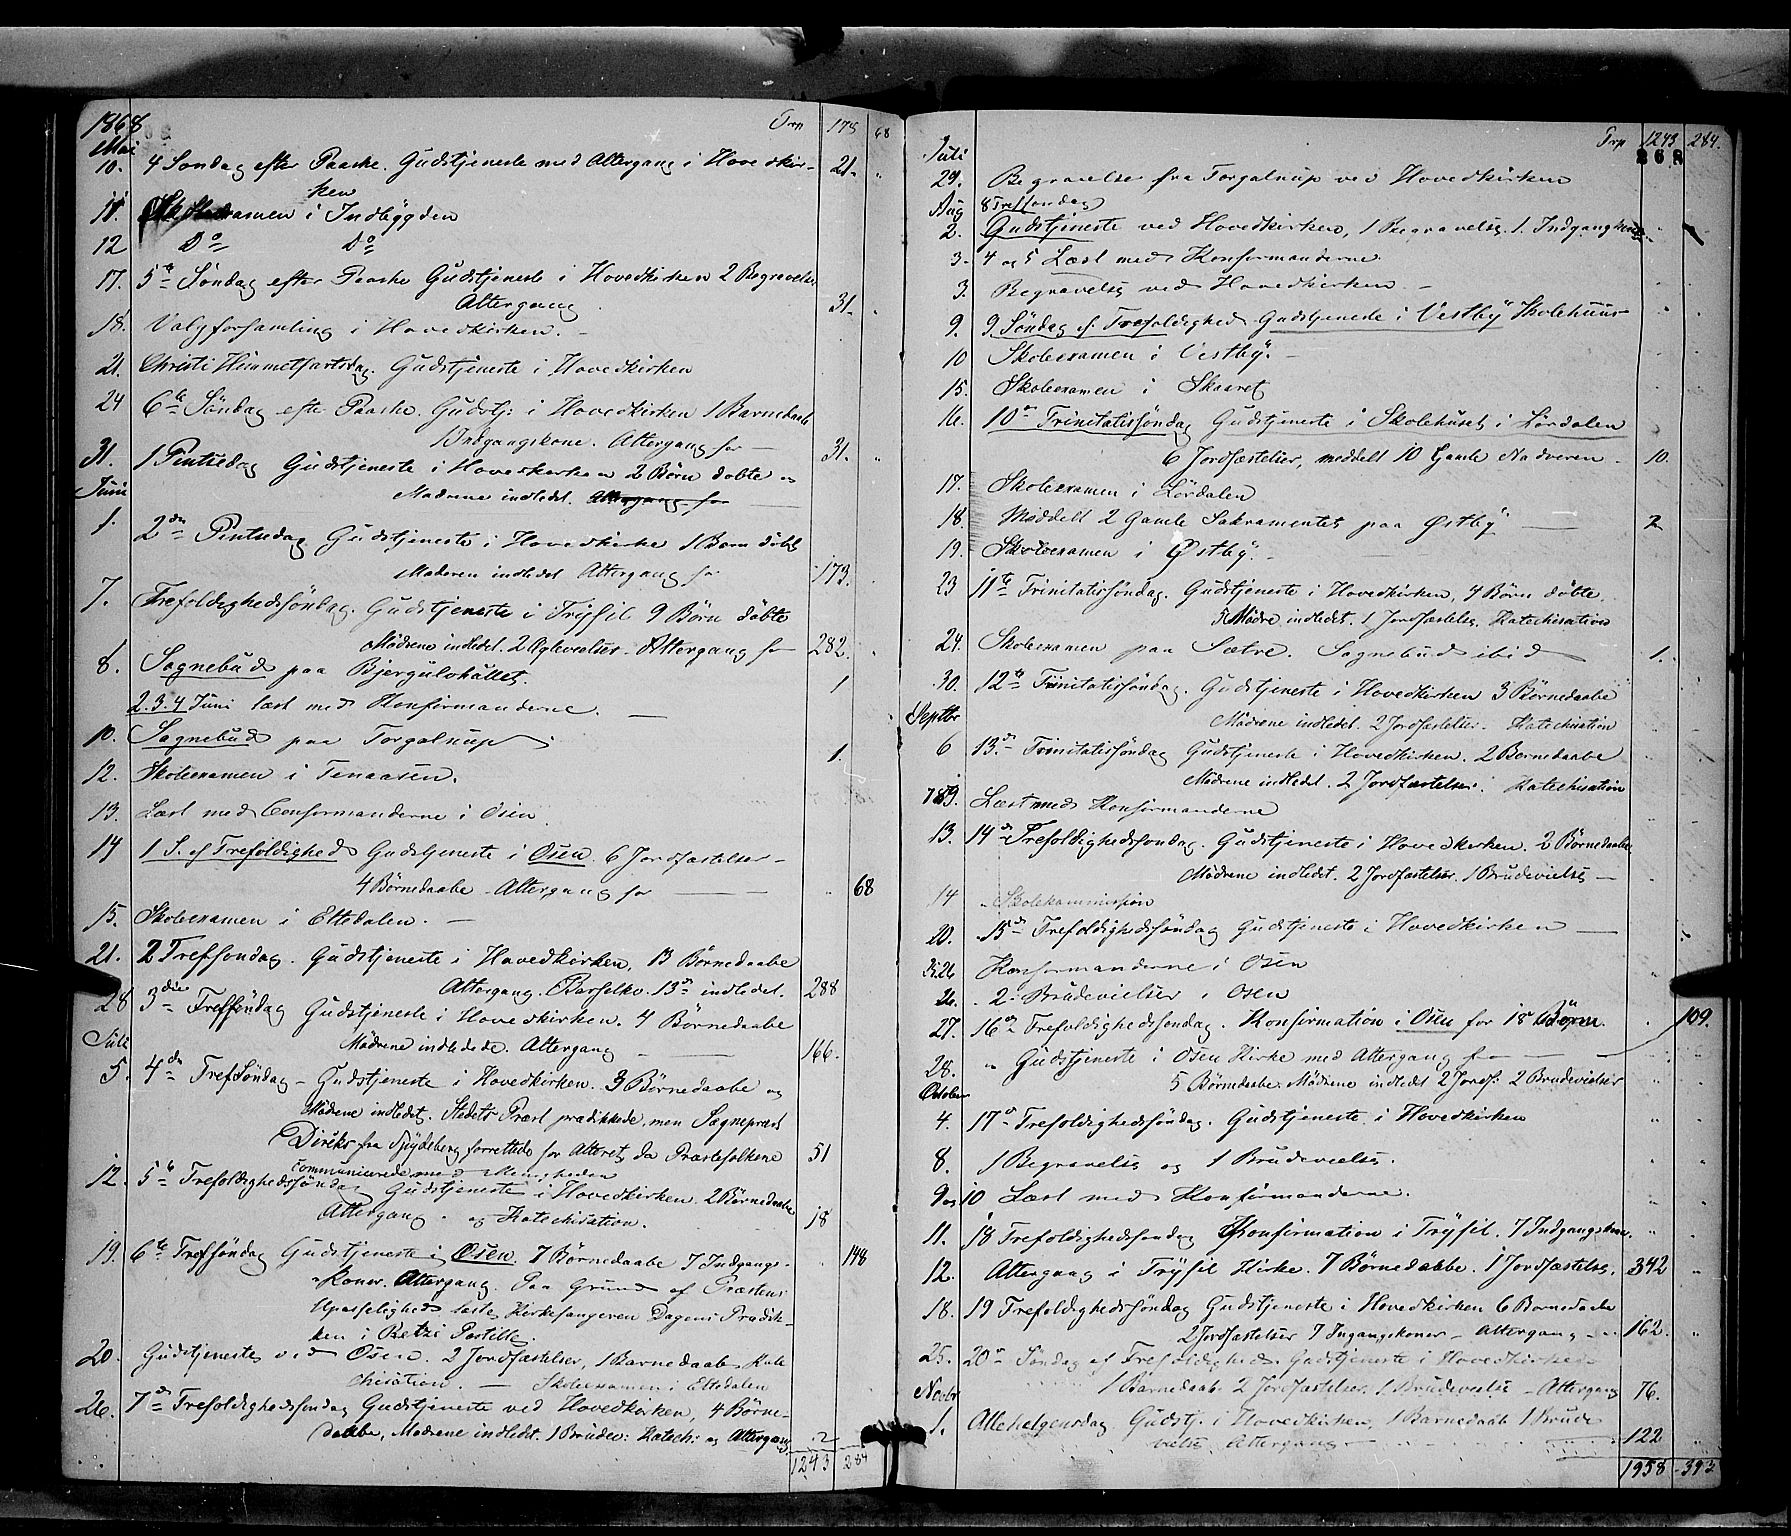 1868 Trp 178 68
Mai
10. 4 Søndag efter Paaske. Gudstjeneste med Altergang i Hovedkir- 21. "
ken
11. Skoleexamen i Indbÿgden
12 Do Do
17. 5te Søndag efter Paaske Gudstjeneste i Hovedkirken 2 Begravelser
Altergang 31.
18. Valgforsamling i Hovedkirken. -
21. Christi Himmelfartsdag. Gudstjeneste i Hovedkirken
24 6te Søndag efter Paaske. Gudstj: i Hovedkirken 1 Barnedaab
1 Indgangskone. Altergang for — 31. "
31. 1 Pintsedag Gudstjeneste i Hovedkirken 2 Børn døbte og
Juni Mødrene indledet. Altergang for
1. 2den Pintsedag Gudstjeneste i Hovedkirke 1 Barn døbt
Moderen indledet Altergang for 173.
7. Trefoldighedssöndag. Gudstjeneste i Trÿsil 9 Börn döbte
Mödrene indledet. 2 Ægtevielser. Altergang for 282.
8. Sognebud paa Bjergulohullet. 1
2. 3. 4 Juni læst med Konfirmanderne. —
10. Sognebud paa Torgalsrup 1.
12. Skoleexamen i Tenaasen.
13. Læst med Conformanderne i Osen
14 1 S. ef Trefoldighed Gudstjeneste i Osen. 6 Jordfæstelser —
4 Börnedaabe - Altergang for — 68
15. Skoleexamen i Eltdalen. —
21. 2 Trefsondag. Gudstjeneste i Hovedkirken, 13 Börnedaabe
Altergang. Barselko. 13 indledet. 288
28 3die Trefsöndag Gudstjeneste i Hovedkirken. 4 Börnedaabe
Juli Mödrene indledede. Altergang — 166.
5. 4de TrefSöndag — Gudstjeneste i Hovedkirken. 3 Börnedaabe og
Mödrene indledet. Stedets Præst prædikkede, men Sognepræst
Diriks fra Spydeberg forrettede for Alteret, da Præstefolkene 51
communicerede med Menigheden
12. 5te Trefoldighedssöndag Gudstjeneste i Hovedkirken. 2 Börnedaabe
Altergang. og Katechisation. 18
19. 6te Trefsöndag Gudstjeneste i Osen. 7 Börnedaabe 7 Indgangs- 148
koner. Altergang. Paa Grund af Præstens
Upasselighed læste Kirkesangeren Dagens Prædik-
ken i Postille.
20. Gudstjeneste ved Osen. 2 Jordfæstelser, 1 Barnedaab Kate
chisation. — Skoleexamen i Eltdalen
26. 7de Trefoldighedssöndag Gudstjeneste ved Hovedkirken, 4 Börne-
daabe, Mødrene indledet. 1 Brudev: Katech: og Altergang 2
1243 284
Trp 1243 284.
268
Juli
29. Begravelse fra Torgalsrup ved Hovedkirken
Aug 8 Trefsondag
2. Gudstjeneste ved Hovedkirken, 1 Begravelse. 1 Indgangkone
3. 4 og 5 Læst med Konfirmanderne
3. Begravelse ved Hovedkirken. —
9. 9. Söndag ef Trefoldighed Gudstjeneste i Vestbÿ Skolehuus
10 Skoleexamen i Vestbÿ. —
15. Skoleexamen i Skaaret
16. 10de Trinitatissöndag Gudstjeneste i Skolehuset i Lördalen
6 Jordfæstelser, meddelt 10 Gamle Nadveren 10.
17. Skoleexamen i Lördalen
18. Meddelt 2 Gamle Sakramentet paa Østbÿ — 2
19. Skoleexamen i Østbÿ.
23 11te Trinitatissöndag. Gudstjeneste i Hovedkirken, 4 Börn döbte
5 Mødre indledet. 1 Jordfæstelse. Katechisation
24. Skoleexamen paa Sætre. Sognebud ibid 1.
30. 12te Trinitatissöndag. Gudstjeneste i Hovedkirken 3 Börnedaabe
Septbr Mödrene indledet. 2 Jordfæstelser. Katechisation
6 13de Trinitatissöndag Gudstjeneste i Hovedkirken. 2 Börnedaabe
Mødrene indledet. 2 Jordfæstelser. Katechisation
7 8 9. Læst med Konfirmanderne
13. 14de Trefoldighedssöndag. Gudstjeneste i Hovedkirken. 2 Börnedaabe
Mödrene indledet. 2 Jordfæstelser. 1 Brudevielse —
14 Skolekommission
20. 15de Trefoldighedssöndag Gudstjeneste i Hovedkirken —
25. 26 Konfirmanderne i Osen
26. 2 Brudevielser i Osen
27. 16de Trefoldighedssöndag. Konfirmation i Osen for 18 Börn. 109.
28. " Gudstjeneste i Osen Kirke med Altergang for —
October 5 Börnedaabe. Mödrene indledet 2 Jordf: 2 Brudevielser
4. 17de Trefoldighedssöndag. Gudstjeneste i Hovedkirken
8. 1 Begravelse og 1 Brudevielse.
9 og 10 Læst med Konfirmanderne.
11. 18 Trefoldighedssöndag Konfirmation i Trÿsil. 7 Indgangskoner
12. Altergang i Trÿsil Kirke. 7 Börnedaabe. 1 Jordfæstelse. 342
18. 19 Trefoldighedssöndag Gudstjeneste i Hovedkirken 6 Börnedaabe
2 Jordfæstelser 7 Ingangskoner — Altergang — 162.
25. 20de Söndag ef Trefoldighed. Gudstjeneste i Hovedkirken
Novbr 1 Barnedaab. 2 Jordfæstelser. 1 Brudevielse — Altergang 76.
1. Allehelgensdag Gudstj. i Hovedkirken, 1 Barnedaab 1 Brude
vielse. Altergang — 122
1958 393